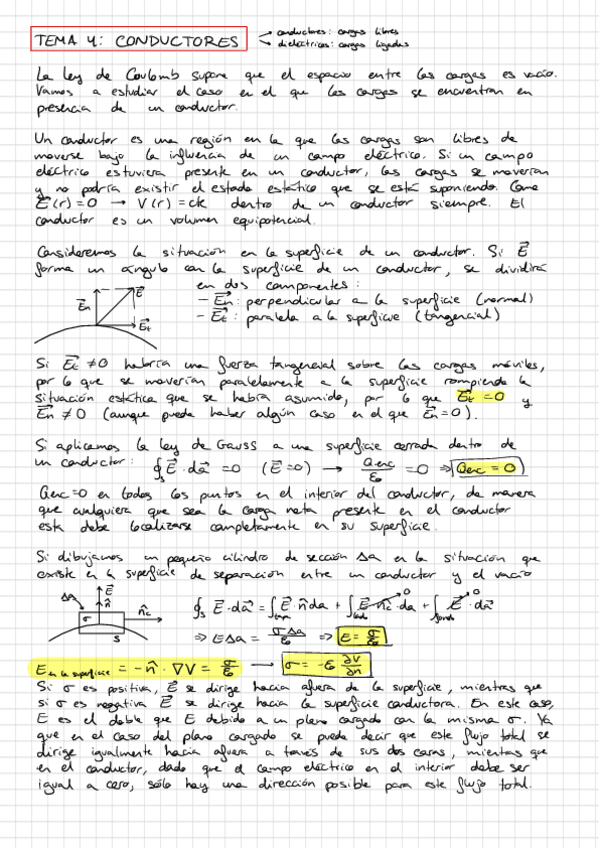 TEMA 4: CONDUCTORES → conductores: cargas libres
→ dieléctricos: cargas ligadas
La ley de Coulomb supone que el espacio entre las cargas es vacío.
Vamos a estudiar el caso en el que las cargas se encuentran en
presencia de un conductor.
Un conductor es una región en la que las cargas son libres de
moverse bajo la influencia de un campo eléctrico. Si un campo
eléctrico estuviera presente en un conductor, las cargas se moverían
y no podría existir el estado estático que se está suponiendo. Como
E⃗(r) = 0 → V(r) = cte dentro de un conductor siempre. El
conductor es un volumen equipotencial.
Consideremos la situación en la superficie de un conductor. Si E⃗
forma un ángulo con la superficie de un conductor, se dividirá
en dos componentes:
E⃗n E⃗ E⃗t
- E⃗n: perpendicular a la superficie (normal)
- E⃗t: paralela a la superficie (tangencial)
Si E⃗t ≠ 0 habría una fuerza tangencial sobre las cargas móviles,
por lo que se moverían paralelamente a la superficie rompiendo la
situación estática que se había asumido, por lo que E⃗t = 0 y
E⃗n ≠ 0 (aunque puede haber algún caso en el que E⃗n = 0).
Si aplicamos la ley de Gauss a una superficie cerrada dentro de
un conductor: ∮s E⃗·da⃗ = 0 (E⃗ = 0) → Qenc/ε0 = 0 ⇒ Qenc = 0
Qenc = 0 en todos los puntos en el interior del conductor, de manera
que cualquiera que sea la carga neta presente en el conductor
esta debe localizarse completamente en su superficie.
Si dibujamos un pequeño cilindro de sección Δa en la situación que
existe en la superficie de separación entre un conductor y el vacío
Δa E⃗ n̂ σ n̂c S
∮s E⃗·da⃗ = ∫tapa E⃗·n̂ da + ∫lado E⃗·n̂c·da + ∫fondo E⃗·da⃗ 0 0
⇒ EΔa = σΔa/ε0 ⇒ E = σ/ε0
E en la superficie = -n̂·∇V = σ/ε0 → σ = -ε0 ∂V/∂n
Si σ es positiva, E⃗ se dirige hacia afuera de la superficie, mientras que
si σ es negativa E⃗ se dirige hacia la superficie conductora. En este caso,
E es el doble que E debido a un plano cargado con la misma σ. Ya
que en el caso del plano cargado se puede decir que este flujo total se
dirige igualmente hacia afuera a través de sus dos caras, mientas que
en el conductor, dado que el campo eléctrico en el interior debe ser
igual a cero, sólo hay una dirección posible para este flujo total.